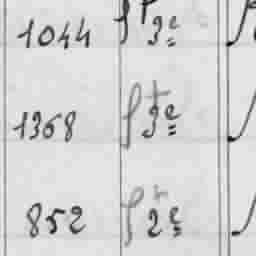 1044 3e
1368 3e
852 2e